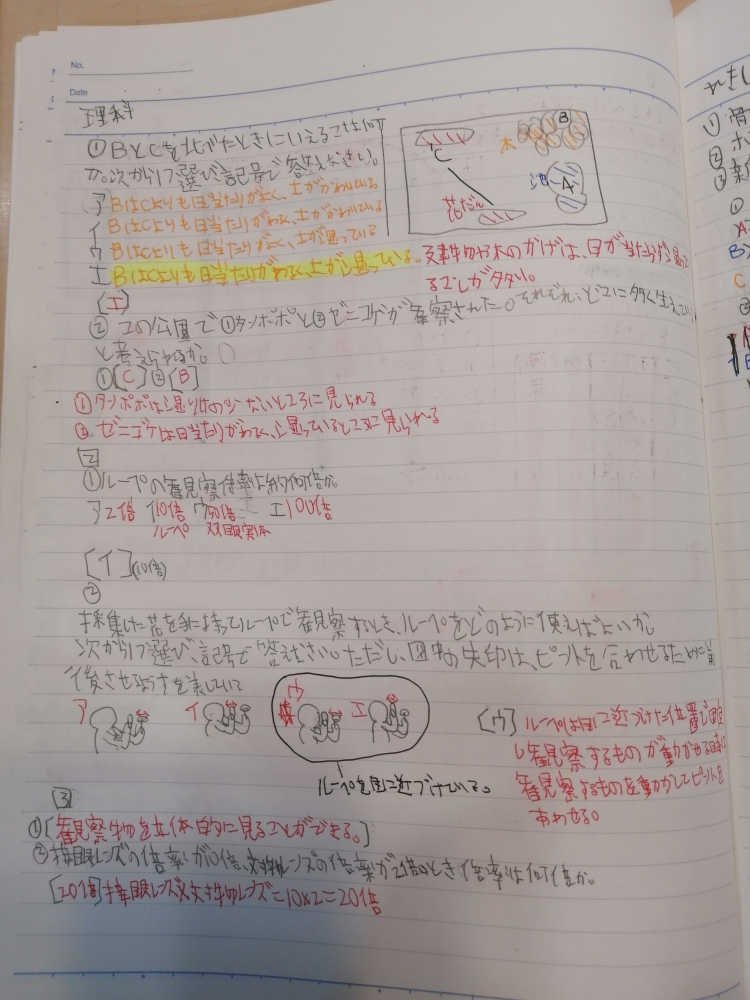 No.
Date
理科
①BとCを比べたときにいえることは何
か。次から1つ選び、記号で答えなさい。
ア BはCよりも日当たりがよく、土がかわいている。
イ BはCよりも日当たりがわるく、土がかわいている
ウ BはCよりも日当たりがよく、土が湿っている
エ BはCよりも日当たりがわるく、土が湿っている。
建物や木のかげは、日が当たらず湿って
B
木
C
池 A
花だん
[エ]
②この公園で①タンポポと②ゼニゴケが観察された。それぞれ、どこに多く生えてい
と考えられるか。
①[C]②[B]
①タンポポは湿りけの少ないところに見られる
②ゼニゴケは日当たりがわるく、湿っているところに見られる
2
①ルーペの観察倍率は約何倍か。
ア2倍 イ10倍 ウ50倍 エ100倍
ルーペ 双眼実体
[イ](10倍)
②
採集した花を手に持ってルーペで観察するとき、ルーペをどのように使えばよいか。
次から1つ選び、記号で答えなさい。ただし、図中の矢印は、ピントを合わせるために前
後させるようすを表している
ア イ ウ エ
ルーペを目に近づけている。
[ウ] ルーペは目に近づけた位置で固定
し観察するものが動かせる時は
観察するものを動かしてピントを
あわせる。
3
①[観察物を立体的に見ることができる。]
②接眼レンズの倍率が10倍、対物レンズの倍率が2倍のとき倍率は何倍か。
[20倍]接眼レンズ×対物レンズ=10×2=20倍